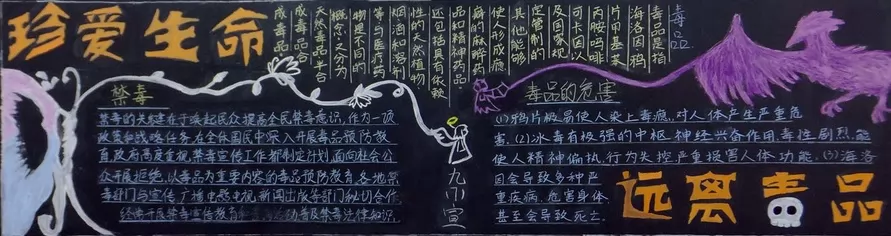 珍爱生命
毒品
毒品是指
海洛因鸦
片甲基苯
丙胺吗啡
可卡因以
及国家规
定管制的
其他能够
使人形成瘾
癖的麻醉药
品和精神药品.
还包括具有依赖
性的天然植物
烟酒和溶剂
等与医疗药
物是不同的
概念又分为
天然毒品半合
成毒品合
成毒品
禁毒
禁毒的关键在于唤起民众提高全民禁毒意识,作为一项
政策和战略任务,在全体国民中深入开展毒品预防教
育,政府高度重视,禁毒宣传工作都制定计划,面向社会公
众开展拒绝,以毒品为主要内容的毒品预防教育,各地禁
毒部门与宣传,广播,电影电视,新闻出版等部门密切合作,
经常开展禁毒宣传教育和活动普及禁毒法律知识,
九(7)宣
毒品的危害
(1)鸦片极易使人染上毒瘾,对人体产生严重危
害.(2)冰毒有极强的中枢神经兴奋作用,毒性剧烈,能
使人精神偏执,行为失控,严重损害人体功能,(3)海洛
因会导致多种严
重疾病,危害身体
甚至会导致死亡.
远离毒品